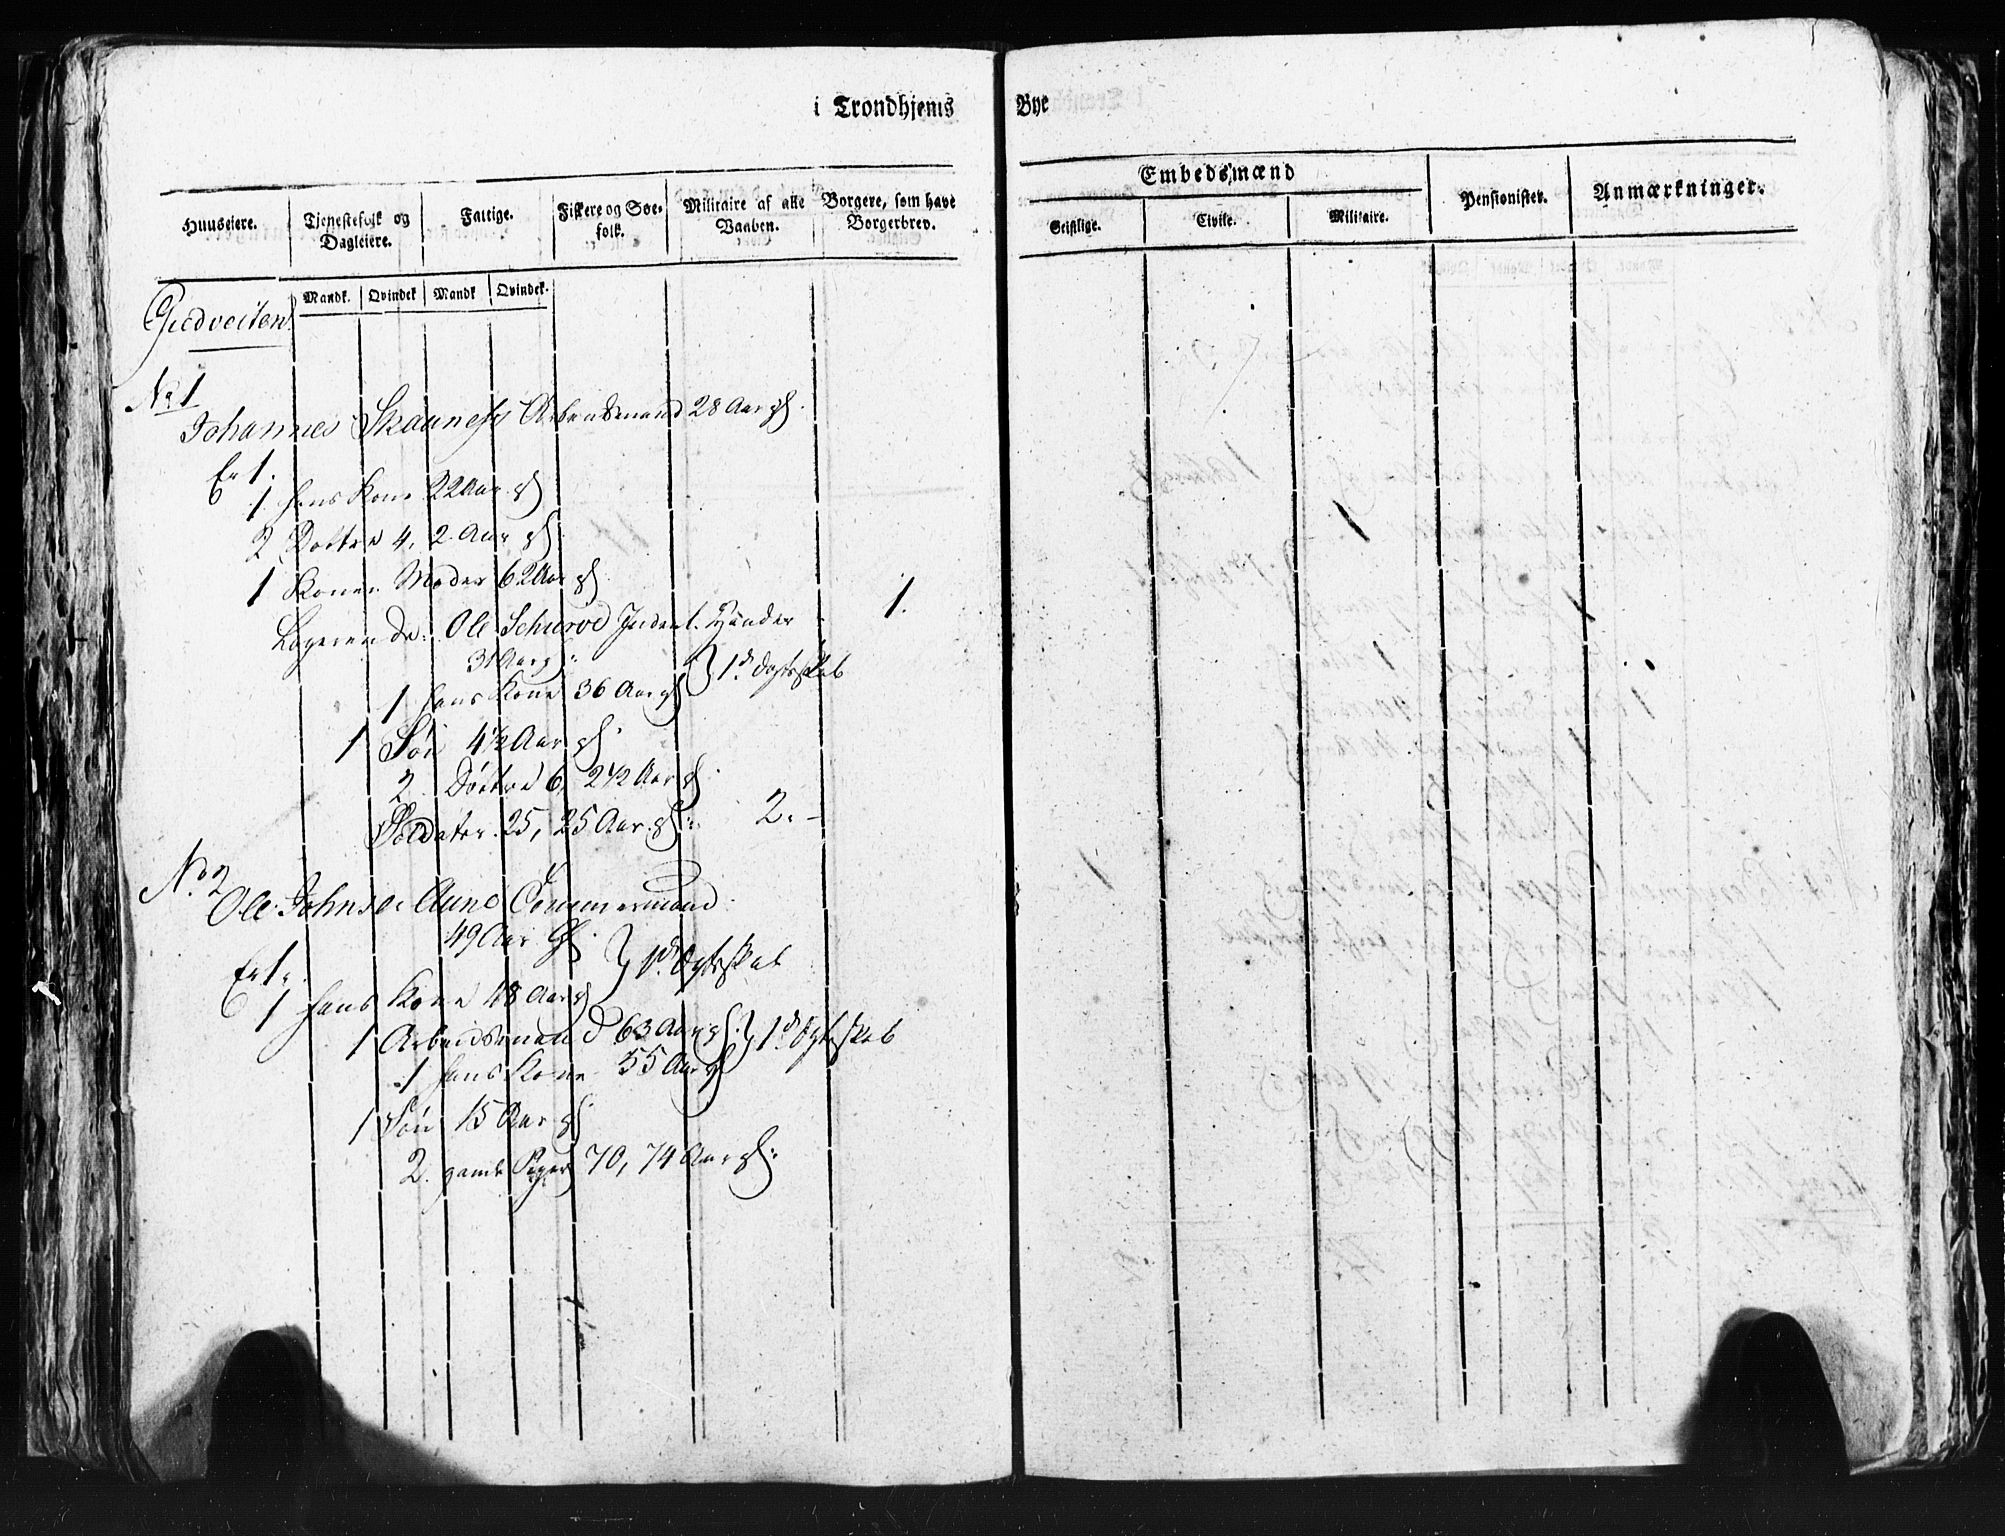 i Trondhjems Bye
Huuseiere.
Tjenestefolk og Dagleiere.
Fattige.
Fiskere og Søefolk.
Militaire af alle Vaaben.
Borgere, som have Borgerbrev.
Embedsmænd
Geistlige. Civile. Militaire.
Pensionister.
Anmærkninger.
Mandk. Qvindek. Mandk. Qvindek.
Gudveiten
No 1
Johannes Skaunes Arbeidsmand 28 Aar gl.
Er 1.
1 hans Kone 22 Aar gl
2 Dottre 4, 2 Aar gl
1 Konens Moder 62 Aar gl.
Logerende: Ole Schierve Handler 1.
31 Aar gl
1 hans Kone 36 Aar gl } 1d. Egteskab
1 Søn 4½ Aar gl.
2 Døttre 6, 2½ Aar gl
Soldater 25, 25 Aar gl: 2.
No 2
Ole Johnsen Aune Tømmermand
49 Aar gl.
Er 1. } 1d. Egteskab
1 hans Kone 48 Aar gl
1 Arbeidsmand 63 Aar gl. } 1d. Egteskab
1 hans Kone 55 Aar gl
1 Søn 15 Aar gl
2. gamle Piger 70, 74 Aar gl: